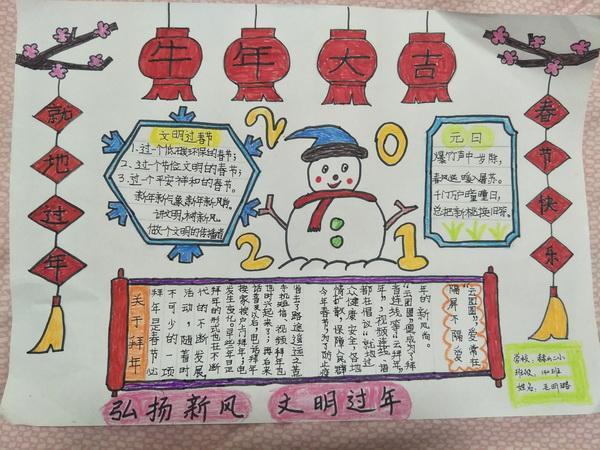 牛年大吉
就地过年
春节快乐
文明过春节
1.过一个低碳环保的春节;
2.过一个节俭文明的春节;
3.过一个平安祥和的春节。
新年新气象,新年新风尚。
讲文明,树新风。
做一个文明的传播者
2021
元日
爆竹声中一岁除,
春风送暖入屠苏。
千门万户曈曈日,
总把新桃换旧符。
关于拜年
拜年是春节必
不可少的一项
活动,随着时
代的不断发展,
拜年的形式也在不断
发生变化。早些年是正
手机短信、视频拜年也
省去了路途遥远之苦
今年春节,为了防止疫
情扩散,保障人民群
众健康安全,各地
都在倡议“就地过
年”,视频连线、语
音连线等“云拜年”、
“云团圆”,便成为了拜
年的新风尚。
“云团圆”,爱常在
隔屏不隔爱
弘扬新风 文明过年
班级:140班